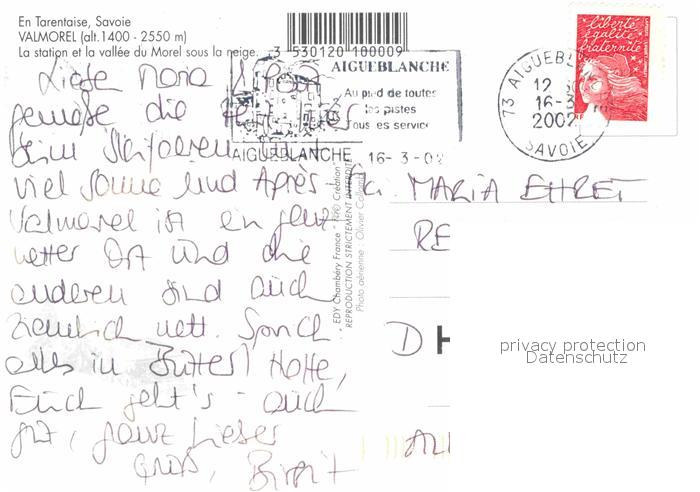 En Tarentaise, Savoie
VALMOREL (alt.1400 - 2550 m)
La station et la vallée du Morel sous la neige.
3 530120 100009
AIGUEBLANCHE
Au pied de toutes
les pistes
Tous les services
AIGUEBLANCHE 16-3-02
73 AIGUEBL
12
16-3
2002
SAVOIE
liberté
égalité
fraternité
Liebe Maria &
genieße die
beim Skifahren
viel Sonne und Après-Ski.
Valmorel ist ein ganz
netter Ort und die
anderen sind auch
ziemlich nett. Sonst
alles in Butter! Hoffe,
Euch geht's auch
gut, ganz lieber
Gruß, Birgit
EDY Chambéry France
REPRODUCTION STRICTEMENT INTERDITE
Photo aérienne : Olivier
MARIA EHRET
RE
D H
privacy protection
Datenschutz